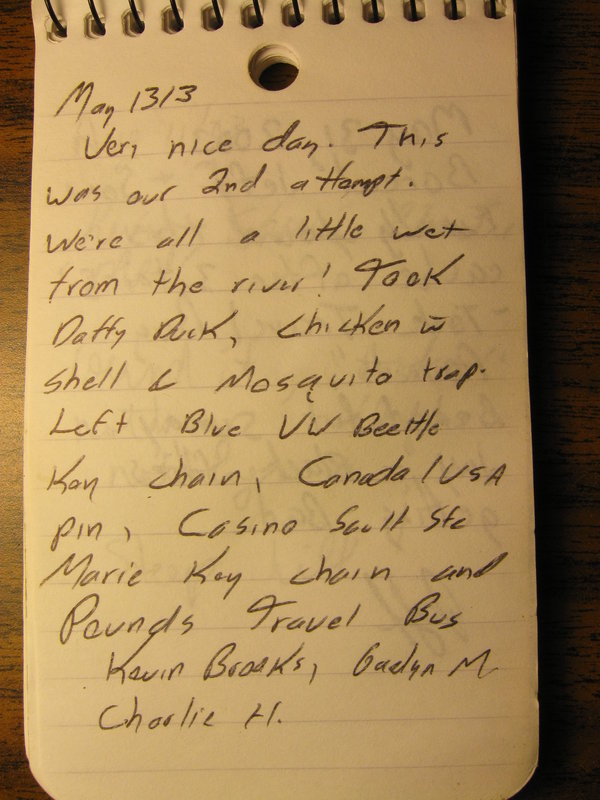 May 13/3
Very nice day. This
was our 2nd attempt.
We're all a little wet
from the river! Took
Daffy Duck, Chicken w̄
shell & Mosquito trap.
Left Blue VW Beetle
Key chain, Canada/USA
pin, Casino Sault Ste
Marie Key chain and
Pounds Travel Bus
Kevin Brooks, M
Charlie H.